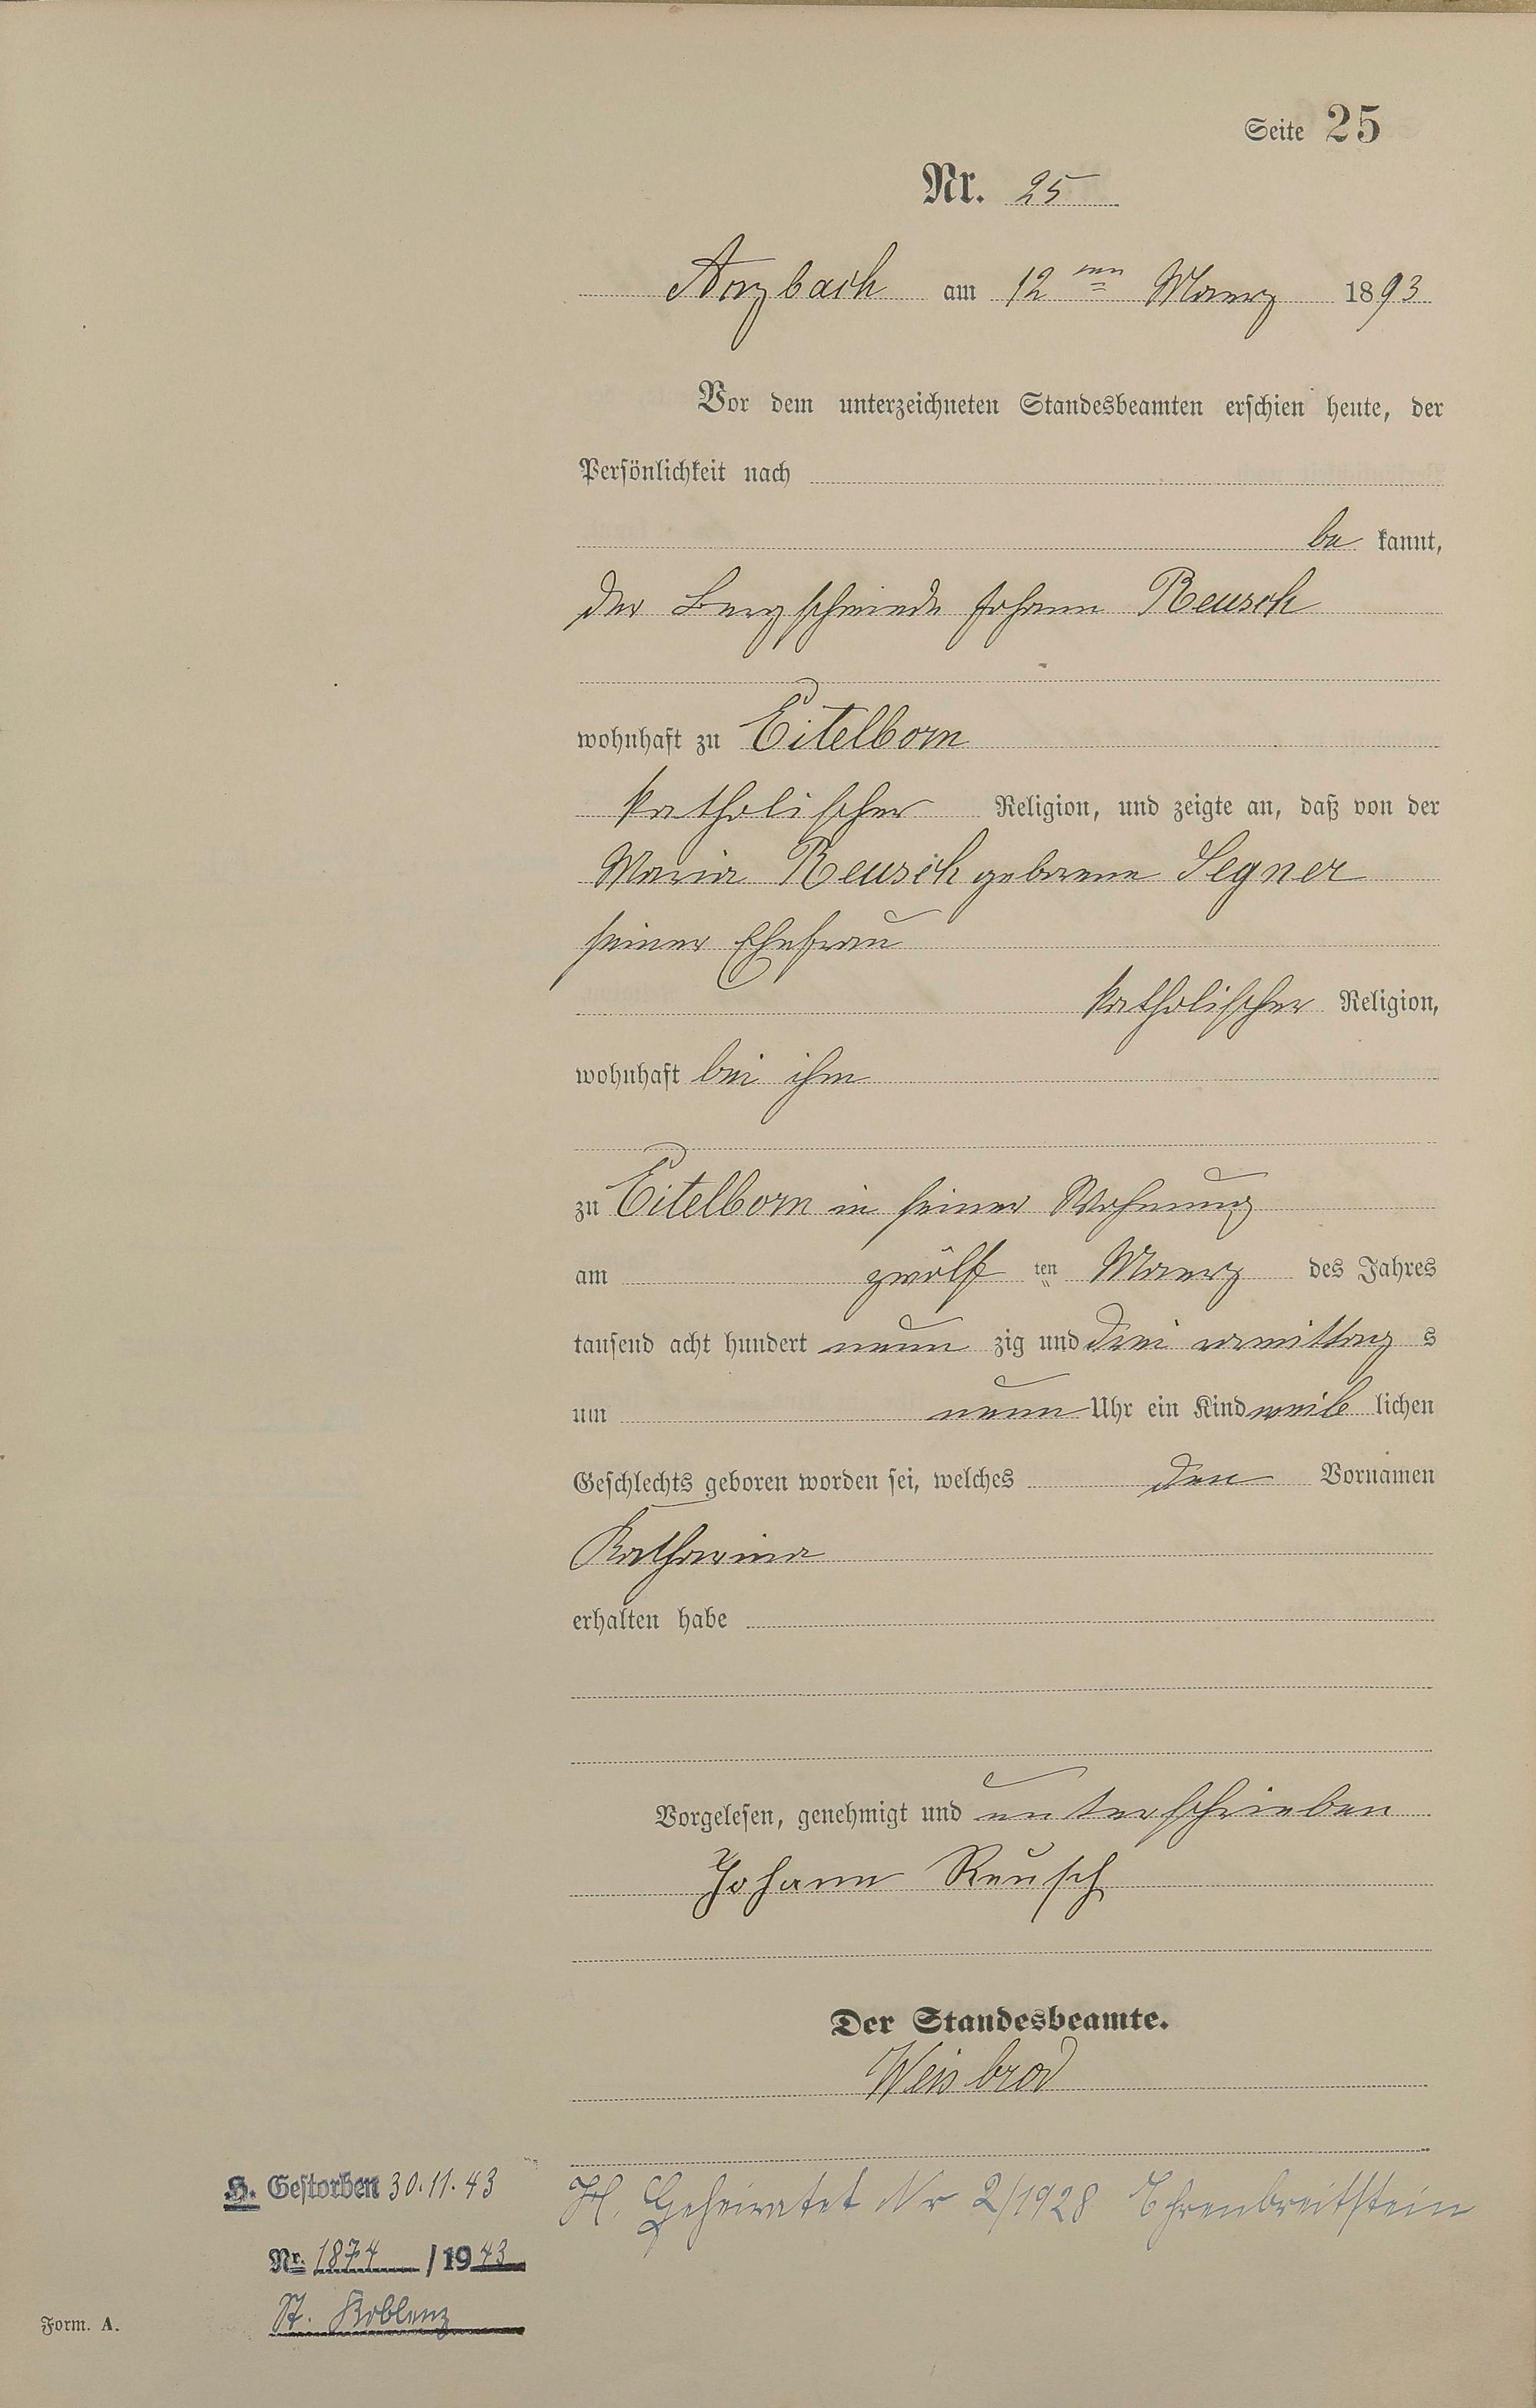 Seite 25
Nr. 25
Arzbach am 12 ten Maerz 1893
Vor dem unterzeichneten Standesbeamten erschien heute, der
Persönlichkeit nach
be kannt,
der Bergschmiede Johann Reusch
wohnhaft zu Eitelborn
katholischer Religion, und zeigte an, daß von der
Maria Reusch geborene Segner
seiner Ehefrau
katholischer Religion,
wohnhaft bei ihm
zu Eitelborn in seiner Wohnung
am zwölf ten Maerz des Jahres
tausend acht hundert neun zig und drei vormittag s
um neun Uhr ein Kind weib lichen
Geschlechts geboren worden sei, welches den Vornamen
Katharina
erhalten habe
Vorgelesen, genehmigt und unterschrieben
Johann Reusch
Der Standesbeamte.
Weisbrod
H. Geheiratet Nr 2/1928 Ehrenbreitstein
H. Gestorben 30.11.43
Nr. 1874 /1943
St. Koblenz
Form. A.